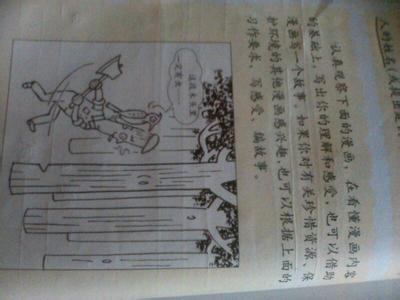 人的姓名
认真观察下面的漫画，在看懂漫画内容
的基础上，写出你的理解和感受，也可以借助
漫画写一个故事。如果你对有关珍惜资源、保
护环境的其他漫画感兴趣，也可以根据上面的
习作要求，写感受，编故事。
这段木头里
一定有虫……